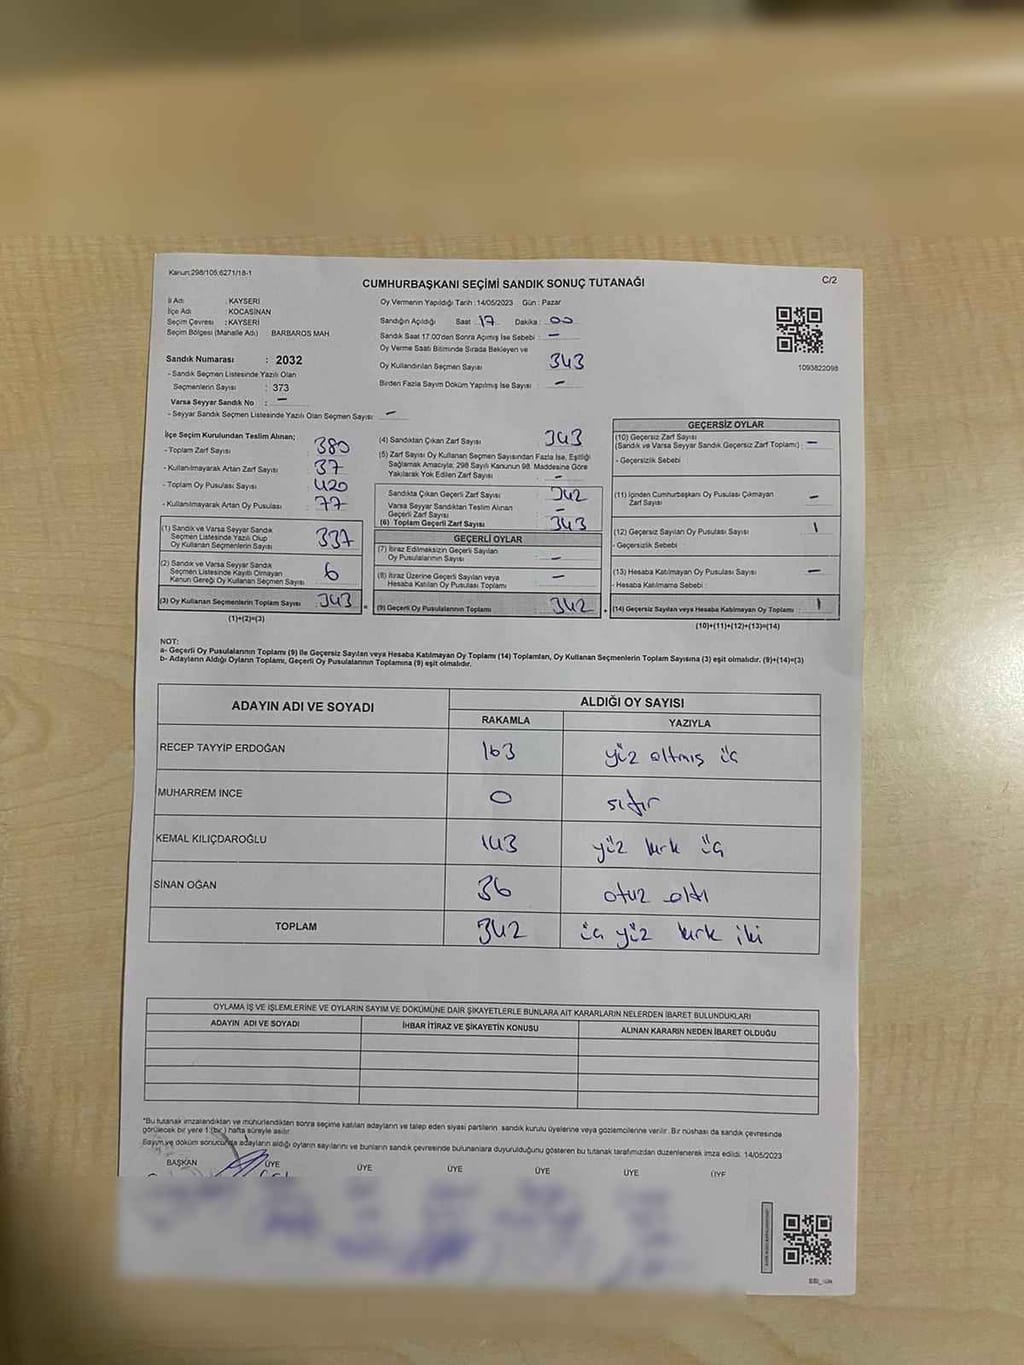 Kanun:298/105;6271/18-1
CUMHURBAŞKANI SEÇİMİ SANDIK SONUÇ TUTANAĞI
C/2
İl Adı : KAYSERİ
İlçe Adı : KOCASİNAN
Seçim Çevresi : KAYSERİ
Seçim Bölgesi (Mahalle Adı) : BARBAROS MAH.
Sandık Numarası : 2032
- Sandık Seçmen Listesinde Yazılı Olan
Seçmenlerin Sayısı : 373
Varsa Seyyar Sandık No : —
- Seyyar Sandık Seçmen Listesinde Yazılı Olan Seçmen Sayısı : —
Oy Vermenin Yapıldığı Tarih : 14/05/2023 Gün : Pazar
Sandığın Açıldığı Saat : 17 Dakika : 00
Sandık Saat 17:00'den Sonra Açılmış İse Sebebi : —
Oy Verme Saati Bitiminde Sırada Bekleyen ve
Oy Kullandırılan Seçmen Sayısı : 343
Birden Fazla Sayım Döküm Yapılmış İse Sayısı : —
1093822098
İlçe Seçim Kurulundan Teslim Alınan;
- Toplam Zarf Sayısı : 380
- Kullanılmayarak Artan Zarf Sayısı : 37
- Toplam Oy Pusulası Sayısı : 420
- Kullanılmayarak Artan Oy Pusulası : 77
(1) Sandık ve Varsa Seyyar Sandık
Seçmen Listesinde Yazılı Olup
Oy Kullanan Seçmenlerin Sayısı : 337
(2) Sandık ve Varsa Seyyar Sandık
Seçmen Listesinde Kayıtlı Olmayan
Kanun Gereği Oy Kullanan Seçmen Sayısı : 6
(3) Oy Kullanan Seçmenlerin Toplam Sayısı : 343 =
(1)+(2)=(3)
(4) Sandıktan Çıkan Zarf Sayısı : 343
(5) Zarf Sayısı Oy Kullanan Seçmen Sayısından Fazla İse, Eşitliği
Sağlamak Amacıyla; 298 Sayılı Kanunun 98. Maddesine Göre
Yakılarak Yok Edilen Zarf Sayısı : —
Sandıkta Çıkan Geçerli Zarf Sayısı : 342
Varsa Seyyar Sandıktan Teslim Alınan
Geçerli Zarf Sayısı : —
(6) Toplam Geçerli Zarf Sayısı : 343
GEÇERLİ OYLAR
(7) İtiraz Edilmeksizin Geçerli Sayılan
Oy Pusulalarının Sayısı : —
(8) İtiraz Üzerine Geçerli Sayılan veya
Hesaba Katılan Oy Pusulası Toplamı : —
(9) Geçerli Oy Pusulalarının Toplamı : 342 +
GEÇERSİZ OYLAR
(10) Geçersiz Zarf Sayısı
(Sandık ve Varsa Seyyar Sandık Geçersiz Zarf Toplamı) : —
- Geçersizlik Sebebi
(11) İçinden Cumhurbaşkanı Oy Pusulası Çıkmayan
Zarf Sayısı : —
(12) Geçersiz Sayılan Oy Pusulası Sayısı : 1
- Geçersizlik Sebebi
(13) Hesaba Katılmayan Oy Pusulası Sayısı : —
- Hesaba Katılmama Sebebi :
(14) Geçersiz Sayılan veya Hesaba Katılmayan Oy Toplamı : 1
(10)+(11)+(12)+(13)=(14)
NOT:
a- Geçerli Oy Pusulalarının Toplamı (9) ile Geçersiz Sayılan veya Hesaba Katılmayan Oy Toplamı (14) Toplamları, Oy Kullanan Seçmenlerin Toplam Sayısına (3) eşit olmalıdır. (9)+(14)=(3)
b- Adayların Aldığı Oyların Toplamı, Geçerli Oy Pusulalarının Toplamına (9) eşit olmalıdır.
ADAYIN ADI VE SOYADI ALDIĞI OY SAYISI
RAKAMLA YAZIYLA
RECEP TAYYİP ERDOĞAN 163 yüz altmış üç
MUHARREM İNCE 0 sıfır
KEMAL KILIÇDAROĞLU 143 yüz kırk üç
SİNAN OĞAN 36 otuz altı
TOPLAM 342 üç yüz kırk iki
OYLAMA İŞ VE İŞLEMLERİNE VE OYLARIN SAYIM VE DÖKÜMÜNE DAİR ŞİKAYETLERLE BUNLARA AİT KARARLARIN NELERDEN İBARET BULUNDUKLARI
ADAYIN ADI VE SOYADI İHBAR İTİRAZ VE ŞİKAYETİN KONUSU ALINAN KARARIN NEDEN İBARET OLDUĞU
*Bu tutanak imzalandıktan ve mühürlendikten sonra seçime katılan adayların ve talep eden siyasi partilerin sandık kurulu üyelerine veya gözlemcilerine verilir. Bir nüshası da sandık çevresinde
görülecek bir yere 1 (bir) hafta süreyle asılır.
Sayım ve döküm sonucunda adayların aldığı oyların sayılarını ve bunların sandık çevresinde bulunanlara duyurulduğunu gösteren bu tutanak tarafımızdan düzenlenerek imza edildi. 14/05/2023
BAŞKAN ÜYE ÜYE ÜYE ÜYE ÜYE ÜYE